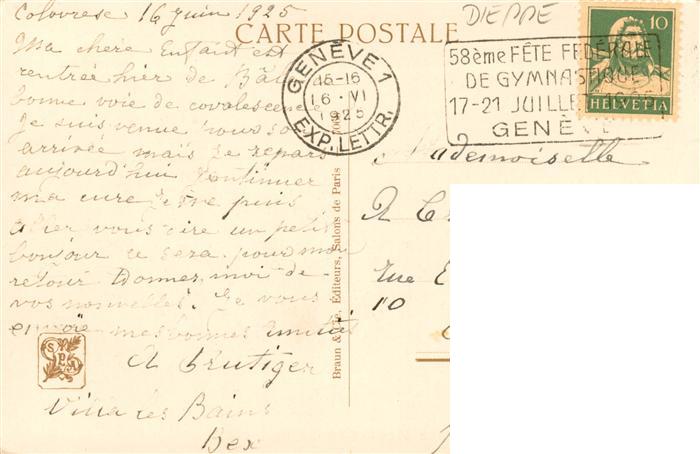 Colovrese 16 juin 1925
CARTE POSTALE
DIEPPE
Ma chere Enfant est
rentrée hier de
bonne voie de covalescence
Je suis venue pour son
arrivée mais je repars
aujourd'hui Continuer
ma cure Je ne puis
aller vous dire un petit
bonjour ce sera pour mon
retour Donnez moi de
vos nouvelles. Je vous
envoie mes bonnes amitiés
A Brutiger
Villa des Bains
Bex
GENÈVE 1
15-16
16 · VI
1925
EXP. LETTR.
58ème FÊTE FÉDÉRALE
DE GYMNASTIQUE
17-21 JUILLET 1925
GENÈVE
10
HELVETIA
Braun & Cie, Éditeurs, Salons de Paris
SPA
Mademoiselle
A
Rue
10